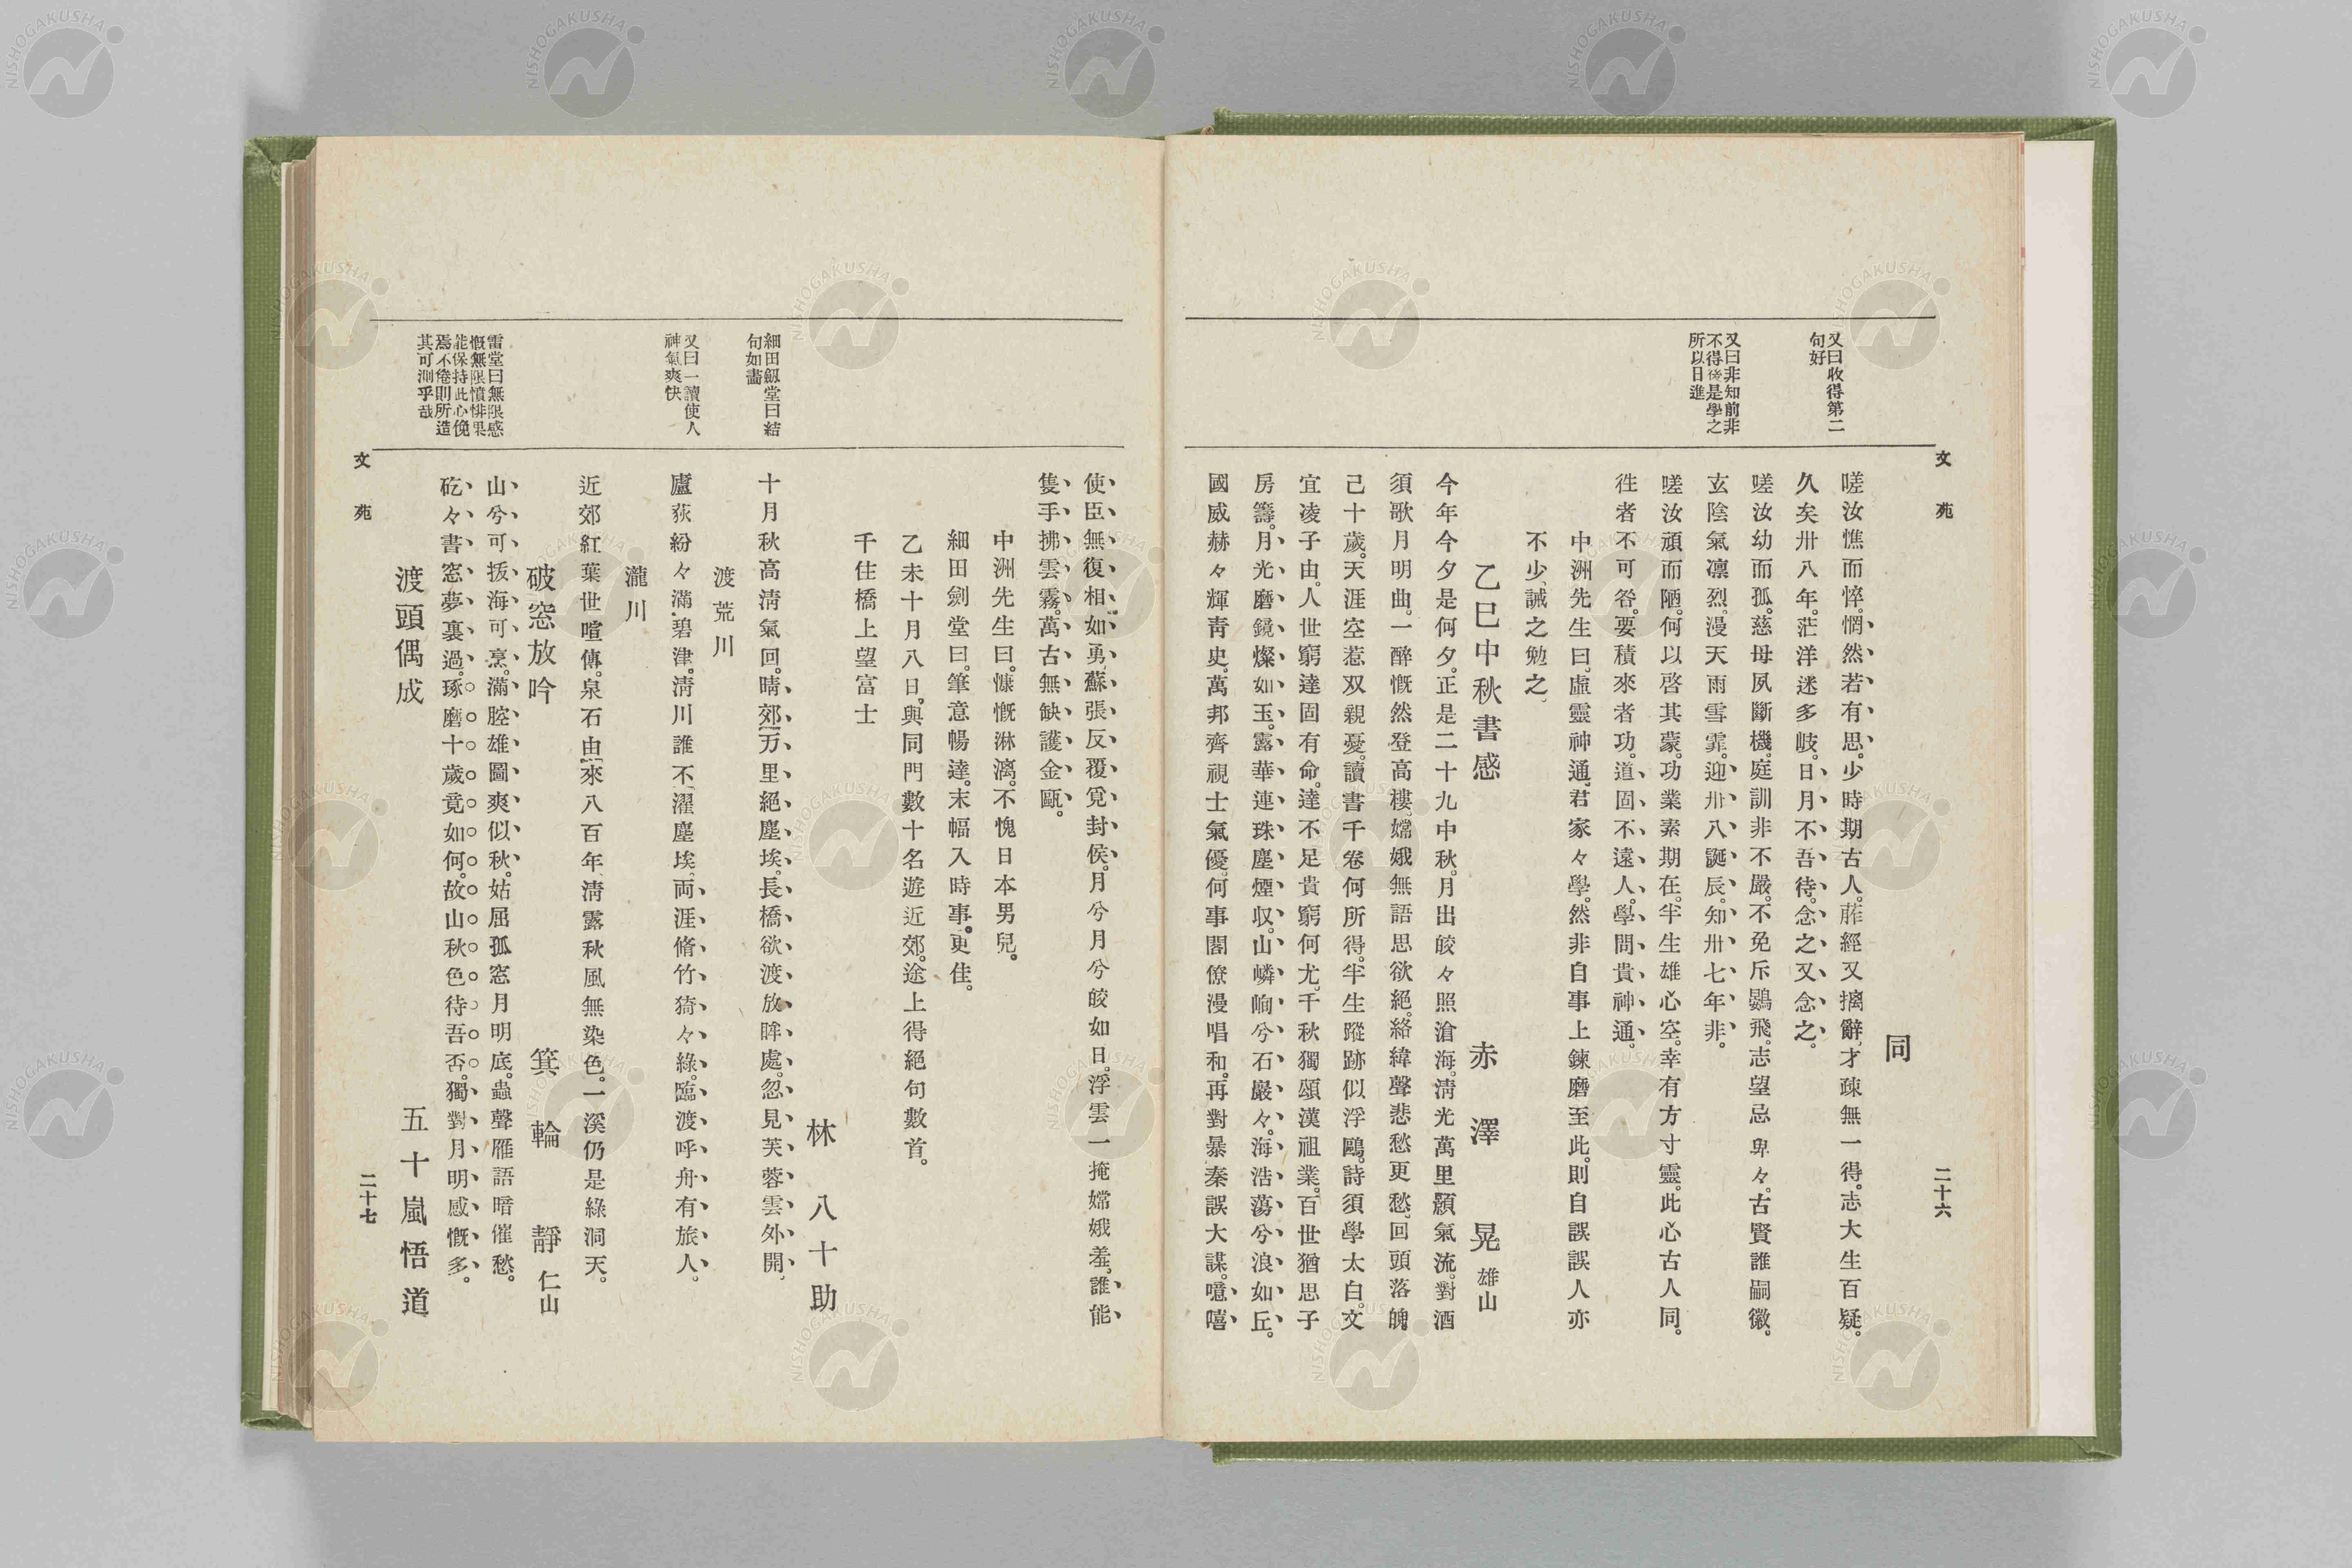 文苑
二十六
又曰收得第二
句好
又曰非知前非
不得後是學之
所以日進
同
嗟汝憔而悴。惘然若有思。少時期古人。蓶經又摛辭。才疎無一得。志大生百疑。
久矣卅八年。茫洋迷多岐。日月不吾待。念之又念之。
嗟汝幼而孤。慈母夙斷機。庭訓非不嚴。不免斥鷃飛。志望忌卑々。古賢誰嗣徽。
玄陰氣凛烈。漫天雨雪霏。迎卅八誕辰。知卅七年非。
嗟汝頑而陋。何以啓其蒙。功業素期在。半生雄心空。幸有方寸靈。此心古人同。
徃者不可咎。要積來者功。道固不遠人。學問貴神通。
中洲先生曰、虛靈神通、君家々學。然非自事上鍊磨至此。則自誤誤人亦
不少、誡之勉之、
乙巳中秋書感
赤澤晃雄山
今年今夕是何夕。正是二十九中秋。月出皎々照滄海。淸光萬里顥氣流。對酒
須歌月明曲。一醉慨然登高樓。嫦娥無語思欲絕。絡緯聲悲愁更愁。回頭落魄
己十歲。天涯空惹双親憂。讀書千卷何所得。半生蹤跡似浮鷗。詩須學太白。文
宜凌子由。人世窮達固有命。達不足貴窮何尤。千秋獨頌漢祖業。百世猶思子
房籌。月光磨鏡燦如玉。露華連珠塵煙収。山嶙峋兮石巖々。海浩蕩兮浪如丘。
國威赫々輝靑史。萬邦齊視士氣優。何事閣僚漫唱和。再對暴秦誤大謀。噫嘻
使臣無復相如勇。蘇張反覆覓封侯。月兮月兮皎如日。浮雲一掩嫦娥羞。誰能
隻手拂雲霧。萬古無缺護金甌。
中洲先生曰。慷慨淋漓。不愧日本男兒。
細田劍堂曰。筆意暢達。末幅入時事。更佳。
乙未十月八日。與同門數十名遊近郊。途上得絕句數首。
千住橋上望富士
林八十助
細田劔堂曰結
句如畵
十月秋高淸氣回。晴郊万里絕塵埃。長橋欲渡放眸處。忽見芙蓉雲外開、
渡荒川
又曰一讀使人
神氣爽快
廬荻紛々滿碧津。淸川誰不濯塵埃、両涯脩竹猗々綠。臨渡呼舟有旅人。
瀧川
近郊紅葉世喧傳。泉石由來八百年、淸露秋風無染色。一溪仍是綠洞天。
破窓放吟
箕輪靜仁山
雷堂曰無限感
慨無限憤悱果
能保持此心俛
焉不倦則所造
其可測乎哉
山兮可拔海可烹。滿腔雄圖爽似秋。姑屈孤窓月明底。蟲聲雁語暗催愁。
矻々書窓夢裏過。琢磨十歲竟如何。故山秋色待吾否。獨對月明感慨多。
渡頭偶成
五十嵐悟道
文苑
二十七